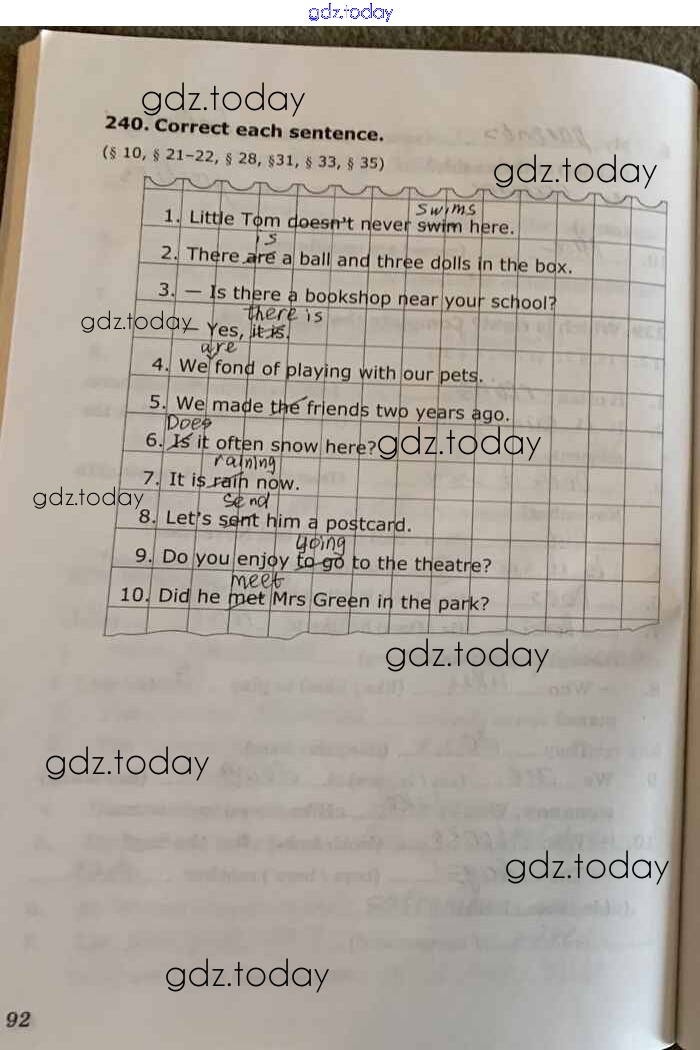 gdz.today
gdz.today
240. Correct each sentence.
(§ 10, § 21–22, § 28, §31, § 33, § 35)
gdz.today
swims
1. Little Tom doesn't never swim here.
is
2. There are a ball and three dolls in the box.
3. — Is there a bookshop near your school?
there is
gdz.today
— Yes, it is.
are
4. We fond of playing with our pets.
5. We made the friends two years ago.
Does
6. Is it often snow here?
gdz.today
raining
7. It is rain now.
gdz.today
send
8. Let's sent him a postcard.
going
9. Do you enjoy to go to the theatre?
meet
10. Did he met Mrs Green in the park?
gdz.today
gdz.today
gdz.today
gdz.today
92